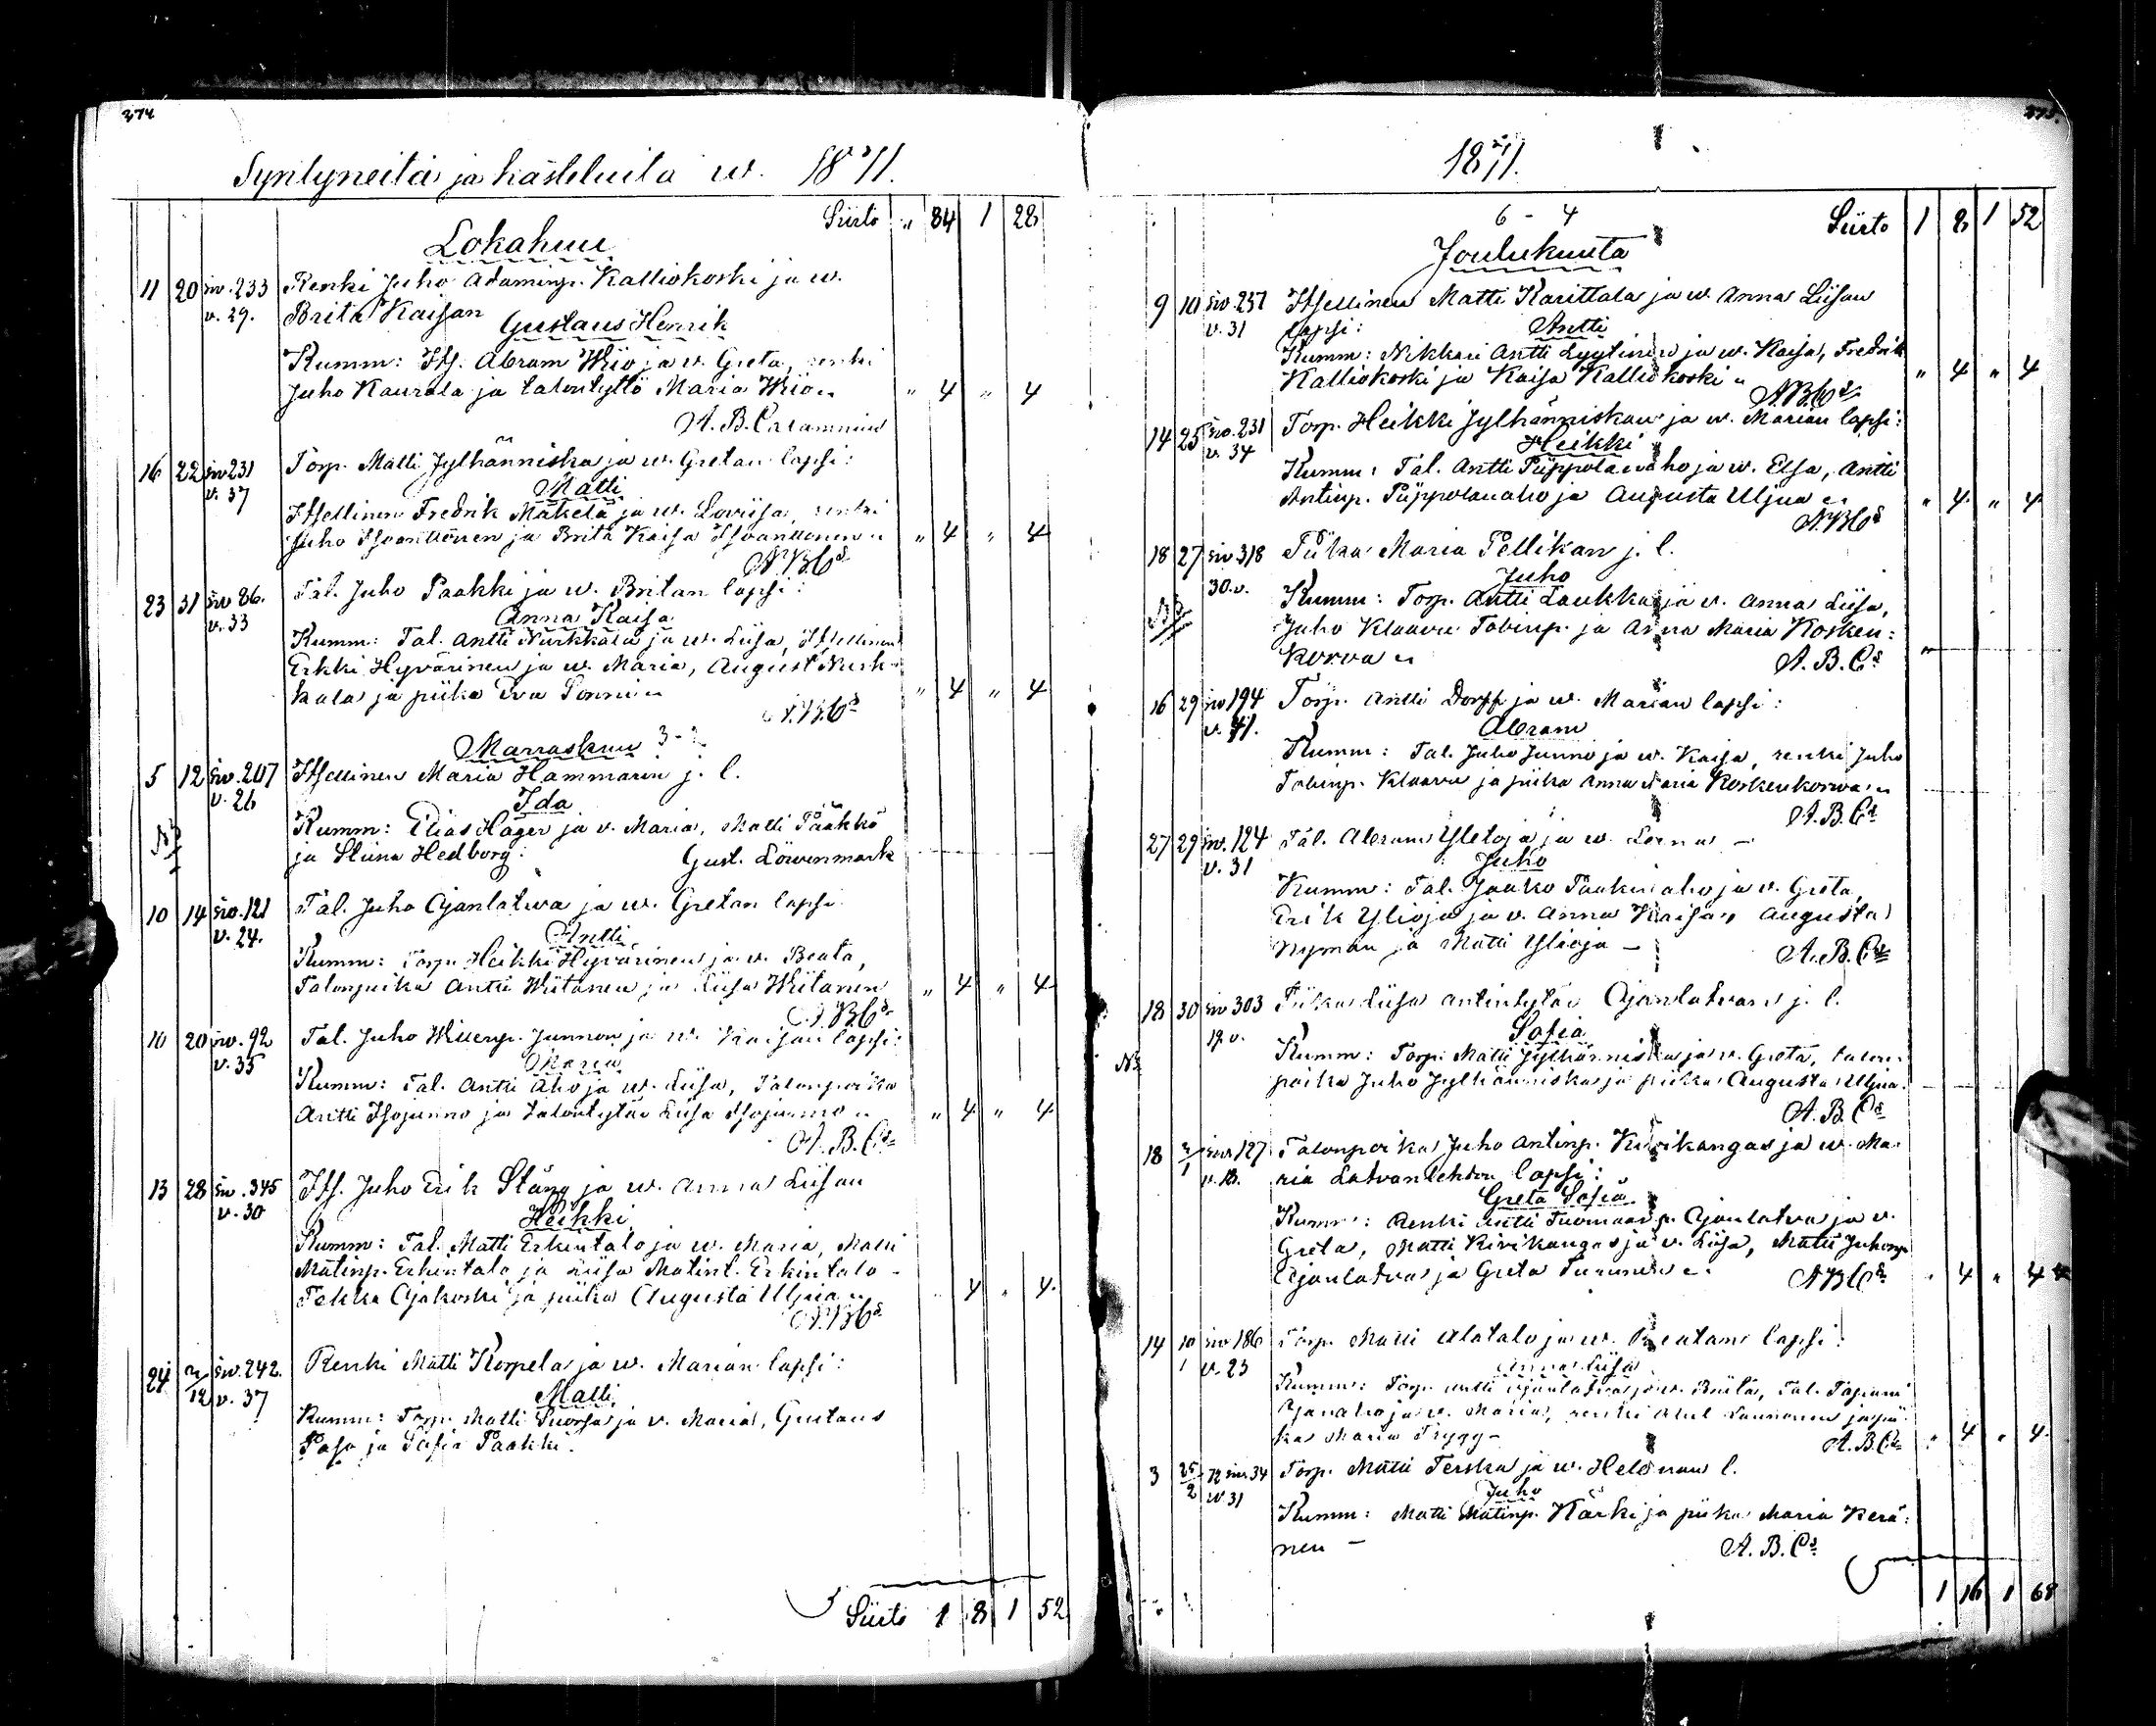 274
Syntyneitä ja kasteluita w. 1871.
Siirto " 84 1 28
Lokakuu
11 20 siv. 233 Renki Juho Adaminp. Kalliokoski ja w.
v. 29. Brita Kaisan
Gustavs Henrik
Kumm: Its. Abram Wiio ja w. Greta, renki
Juho Kaurala ja talontyttö Maria Wiio " 4 " 4
A. B. Calamnius
16 22 siv 231 Torp. Matti Jylhänniska ja w. Gretan lapsi:
v. 37 Matti
Itsellinen Fredrik Mäkelä ja w. Loviisa, renki
Juho Isoanttonen ja Brita Kaisa Isoanttonen " 4 " 4
A. B. Cs
23 31 siv 86. Tal. Juho Paakki ja w. Britan lapsi:
v. 33 Anna Kaisa
Kumm: Tal. Antti Nurkkala ja w. Liisa, Itsellinen
Erkki Hyvärinen ja w. Maria, August Nurk-
kala ja piika Eva Sonni " 4 " 4
A. B. Cs
Marraskuu 3 -
5 12 siv. 207 Itsellinen Maria Hammarin j. l.
v. 26 Ida
Kumm: Elias Hager ja v. Maria, Matti Pääkkö
ja Stiina Hedborg: Gust. Löwenmark
10 14 siv. 121 Tal. Juho Ojanlatwa ja w. Gretan lapsi
v. 24. Antti
Kumm: Torp. Heikki Hyvärinen ja w. Beata,
Talonpoika Antti Wiitanen ja Liisa Wiitanen " 4 " 4
A. B. Cs
10 20 siv. 92 Tal. Juho Willenp. Junnon ja w. Kaisan lapsi:
v. 35 Maria
Kumm: Tal. Antti Aho ja w. Liisa, Talonpoika
Antti Isojunno ja talontytär Liisa Isojunno " 4 " 4
A. B. Cs
13 28 siv. 345 Its. Juho Erik Stång ja w. Anna Liisan
v. 30 Heikki
Kumm: Tal. Matti Erkintalo ja w. Maria, Matti
Matinp. Erkintalo ja Liisa Matint. Erkintalo -
Pekka Ojakoski ja piika Augusta Uljua " 4 " 4.
A. B. Cs
24 2/12 siv. 242. Renki Matti Korpela ja w. Marian lapsi:
v. 37 Matti
Kumm: Torp. Matti Suorsa ja v. Maria, Gustavs
Paso ja Sofia Paakki.
Siirto 1 8 1 52
275.
1871.
6 - 4 Siirto 1 8 1 52
Joulukuuta
9 10 siv. 257 Itsellinen Matti Karittala ja w. Anna Liisan
v. 31 lapsi: Antti
Kumm: Nikkari Antti Lyytinen ja w. Kaisa, Fredrik
Kalliokoski ja Kaisa Kalliokoski " 4 " 4
A. B. Cs
14 25 siv. 231 Torp. Heikki Jylhänniskan ja w. Marian lapsi:
v. 34 Heikki
Kumm: Tal. Antti Piippolanaho ja w. Elsa, Antti
Antinp. Piippolanaho ja Augusta Uljua " 4 " 4
A. B. Cs
18 27 siv 318 Piika Maria Pellikan j. l.
30. v. Juho
Kumm: Torp. Antti Laukka ja v. Anna Liisa,
Juho Klaavu Tobinp. ja Anna Maria Kosken:
korva A. B. Cs
16 29 siv 194 Torp. Antti Dorff ja w. Marian lapsi:
v. 41. Abram
Kumm: Tal. Juho Junno ja w. Kaisa, renki Juho
Tobinp. Klaavu ja piika Anna Maria Koskenkorwa
A. B. Cs
27 29 siv. 124 Tal. Abram Ylioja ja w. Leena -
v. 31 Juho
Kumm: Tal. Jaako Paakinaho ja v. Greta,
Erik Ylioja ja v. Anna Kaisa, Augusta
Nyman ja Matti Ylioja - A. B. Cs
18 30 siv 303 Piika Liisa Antintytär Ojanlatvan j. l.
19. v. Sofia
Kumm: Torp. Matti Jylhänniska ja w. Greta, talon-
poika Juho Jylhänniska ja piika Augusta Uljua.
A. B. Cs
18 2/1 siv. 127 Talonpoika Juho Antinp. Kivikangas ja w. Ma-
v. 18. ria Latvanlehdon lapsi:
Greta Sofia
Kumm: Renki Antti Tuomaanp. Ojanlatva ja v.
Greta, Matti Kivikangas ja v. Liisa, Matti Juhonp.
Ojanlatva ja Greta Turunen A. B. Cs " 4 " 4
14 10/1 siv 186 Torp. Matti Alatalo ja w. Beatan lapsi:
v. 23 Anna Liisa
Kumm: Torp. Antti Ojanlatva ja w. Briita, Tal. Tapani
Ojanaho ja w. Maria, renki Abel Lannonen ja pii-
ka Maria Trygg - A. B. Cs " 4 " 4.
3 25/2 72 siv. 34 Torp. Matti Terska ja w. Helenan l.
w 31 Juho
Kumm: Matti Matinp. Kärki ja piika Maria Kerä:
nen - A. B. Cs
1 16 1 68